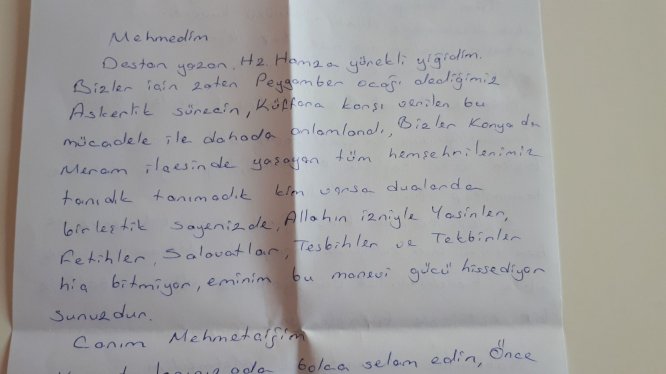 Mehmedim
Destan yazan, Hz. Hamza yürekli yiğidim.
Bizler için zaten Peygamber ocağı dediğimiz
Askerlik sürecin, Küffara karşı verilen bu
mücadele ile dahada anlamlandı, Bizler Konya da
Meram ilçesinde yaşayan tüm hemşehrilerimiz
tanıdık tanımadık kim varsa dualarda
birleştik sayenizde, Allahın izniyle Yasinler,
Fetihler, Salavatlar, Tesbihler ve Tekbirler
hiç bitmiyor, eminim bu manevi gücü hissediyor
sunuzdur.
Canım Mehmetçiğim
bolca selam edin, Önce